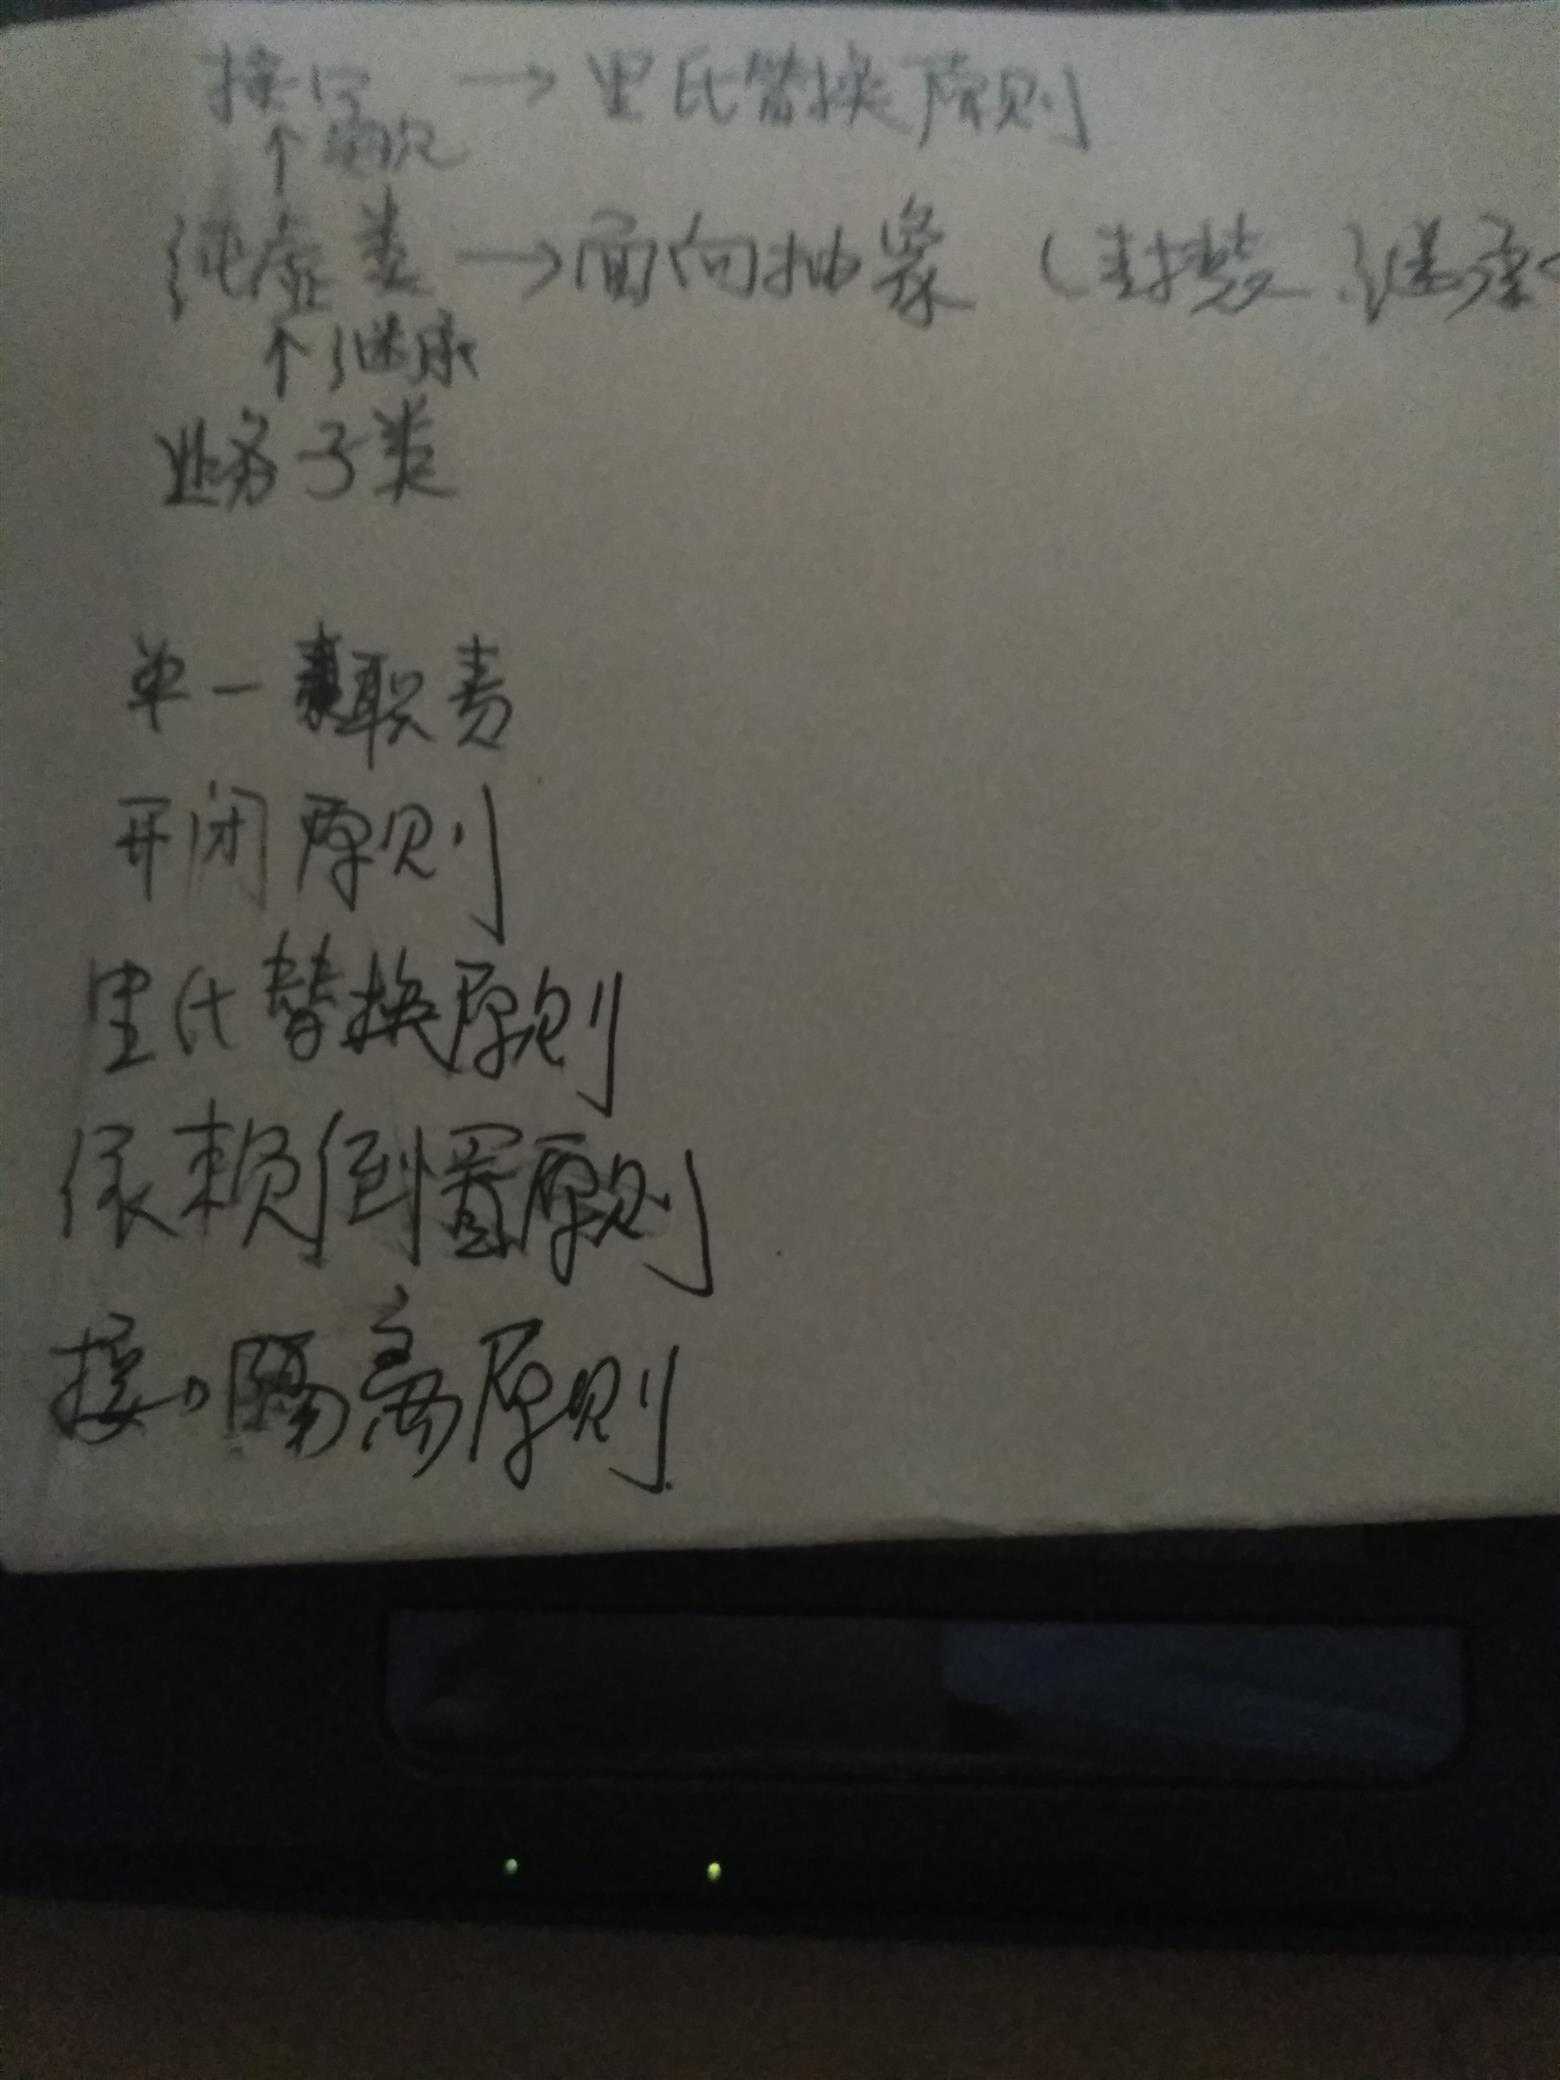 接口 → 里氏替换原则
↑ 实现
纯虚类 → 面向抽象 (封装、继承
↑ 继承
业务子类
单一职责
开闭原则
里氏替换原则
依赖倒置原则
接口隔离原则